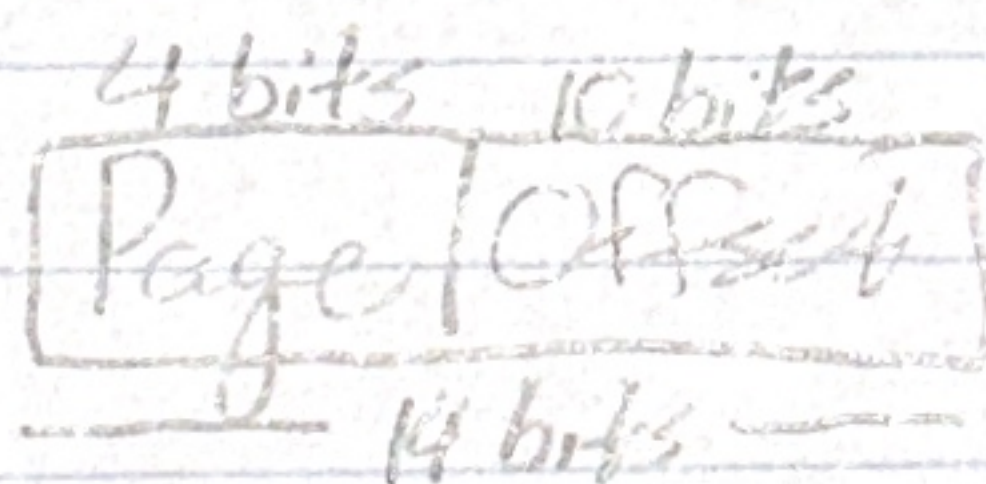 4 bits 10 bits
Page Offset
14 bits